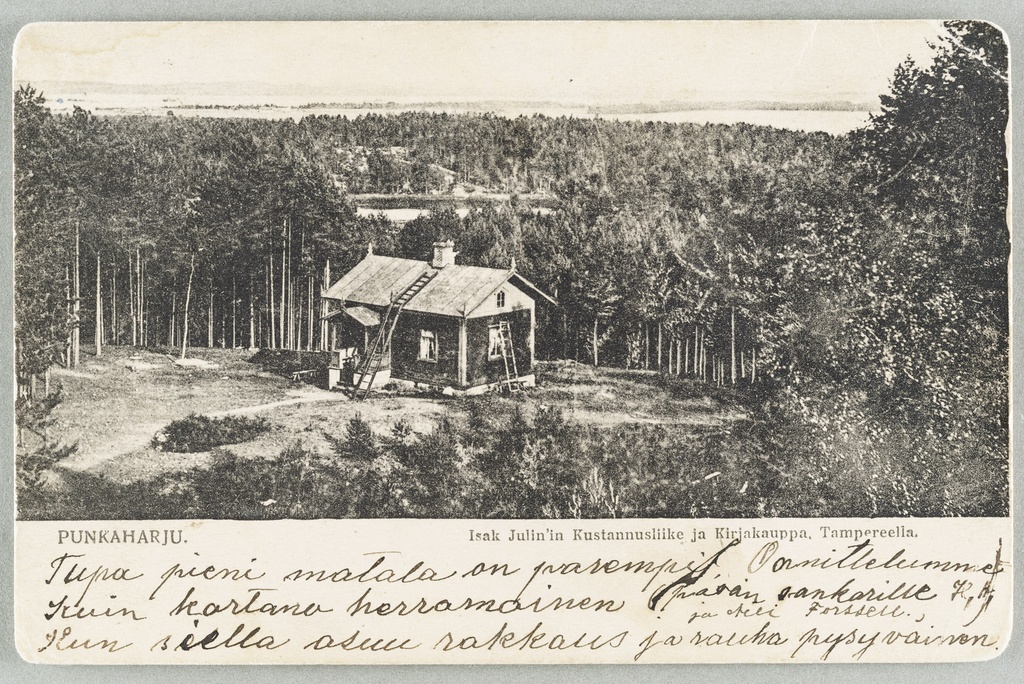 PUNKAHARJU.
Isak Julin'in Kustannusliike ja Kirjakauppa, Tampereella.
Tupa pieni matala on parempi, Onnittelumme
Kuin kartano herramainen päivän sankarille K, H,
ja Forssell.,
Kun siellä asuu rakkaus ja rauha pysyväinen.